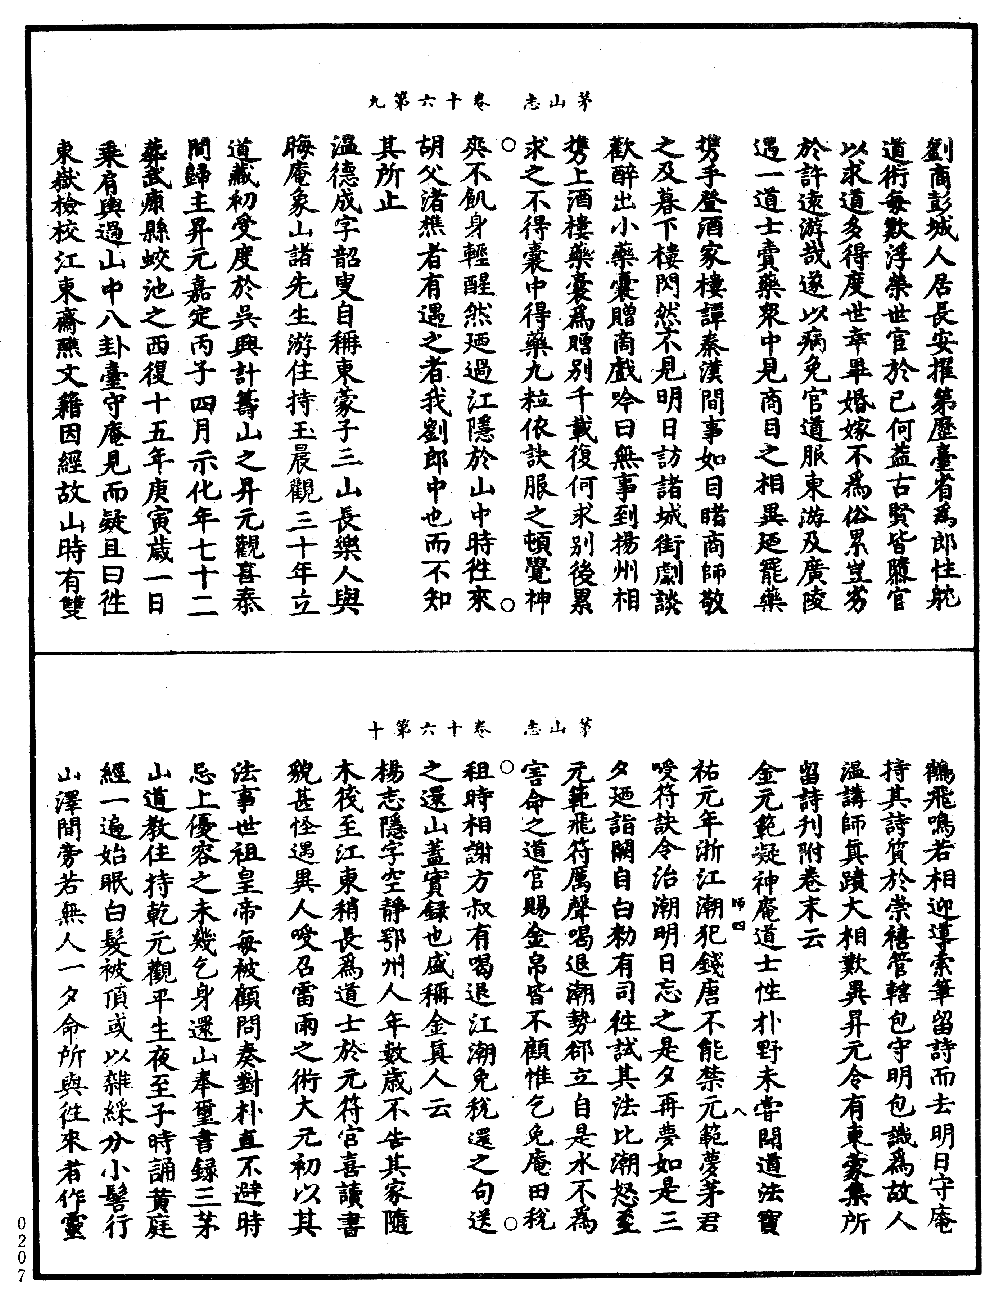 茅山志　卷十六第九
劉商彭城人居長安擢第歷臺省為郎性躭
道術每歎浮榮世官於已何益古賢皆隳官
以求道多得度世幸畢婚嫁不為俗累豈劣
於許遠游哉遂以病免官道服東游及廣陵
遇一道士賣藥眾中見商目之相異廼罷藥
携手登酒家樓譚秦漢間事如目睹商師敬
之及暮下樓閃然不見明日訪諸城街劇談
歡醉出小藥囊贈商戲吟曰無事到揚州相
携上酒樓藥囊為贈別千載復何求別後累
求之不得囊中得藥九粒依訣服之頓覺神
爽不飢身輕醒然廼過江隱於山中時徃來
胡父渚樵者有遇之者我劉郎中也而不知
其所止
溫德成字韶叟自稱東蒙子三山長樂人與
晦庵象山諸先生游住持玉晨觀三十年立
道藏初受度於吳興計籌山之昇元觀喜泰
間歸主昇元嘉定丙子四月示化年七十二
葬武康縣蛟池之西復十五年庚寅歲一日
乘肩輿過山中八卦臺守庵見而疑且曰徃
東嶽檢校江東齋醮文籍因經故山時有雙
茅山志　卷十六第十
鶴飛鳴若相迎導索筆留詩而去明日守庵
持其詩質於崇禧管轄包守明包識為故人
溫講師真蹟大相歎異昇元令有東蒙集所
留詩刊附卷末云
金元範凝神庵道士性朴野未嘗閑道法寶
師四　八
祐元年浙江潮犯錢唐不能禁元範夢茅君
噯符訣令治潮明日忘之是夕再夢如是三
夕廼詣闕自白勑有司徃試其法比潮怒至
元範飛符厲聲喝退潮勢郤立自是水不為
害命之道官賜金帛皆不顧惟乞免庵田稅
租時相謝方叔有喝退江潮免稅還之句送
之還山蓋實録也盛稱金真人云
楊志隱字空靜鄂州人年數歲不告其家隨
木筏至江東稍長為道士於元符宮喜讀書
貌甚怪遇異人噯召雷雨之術大元初以其
法事世祖皇帝每被顧問奏對朴直不避時
忌上優容之未幾乞身還山奉璽書録三茅
山道教住持乾元觀平生夜至子時誦黄庭
經一遍始眠白髮被頂或以雜綵分小髻行
山澤間旁若無人一夕命所與徃來者作靈
0207